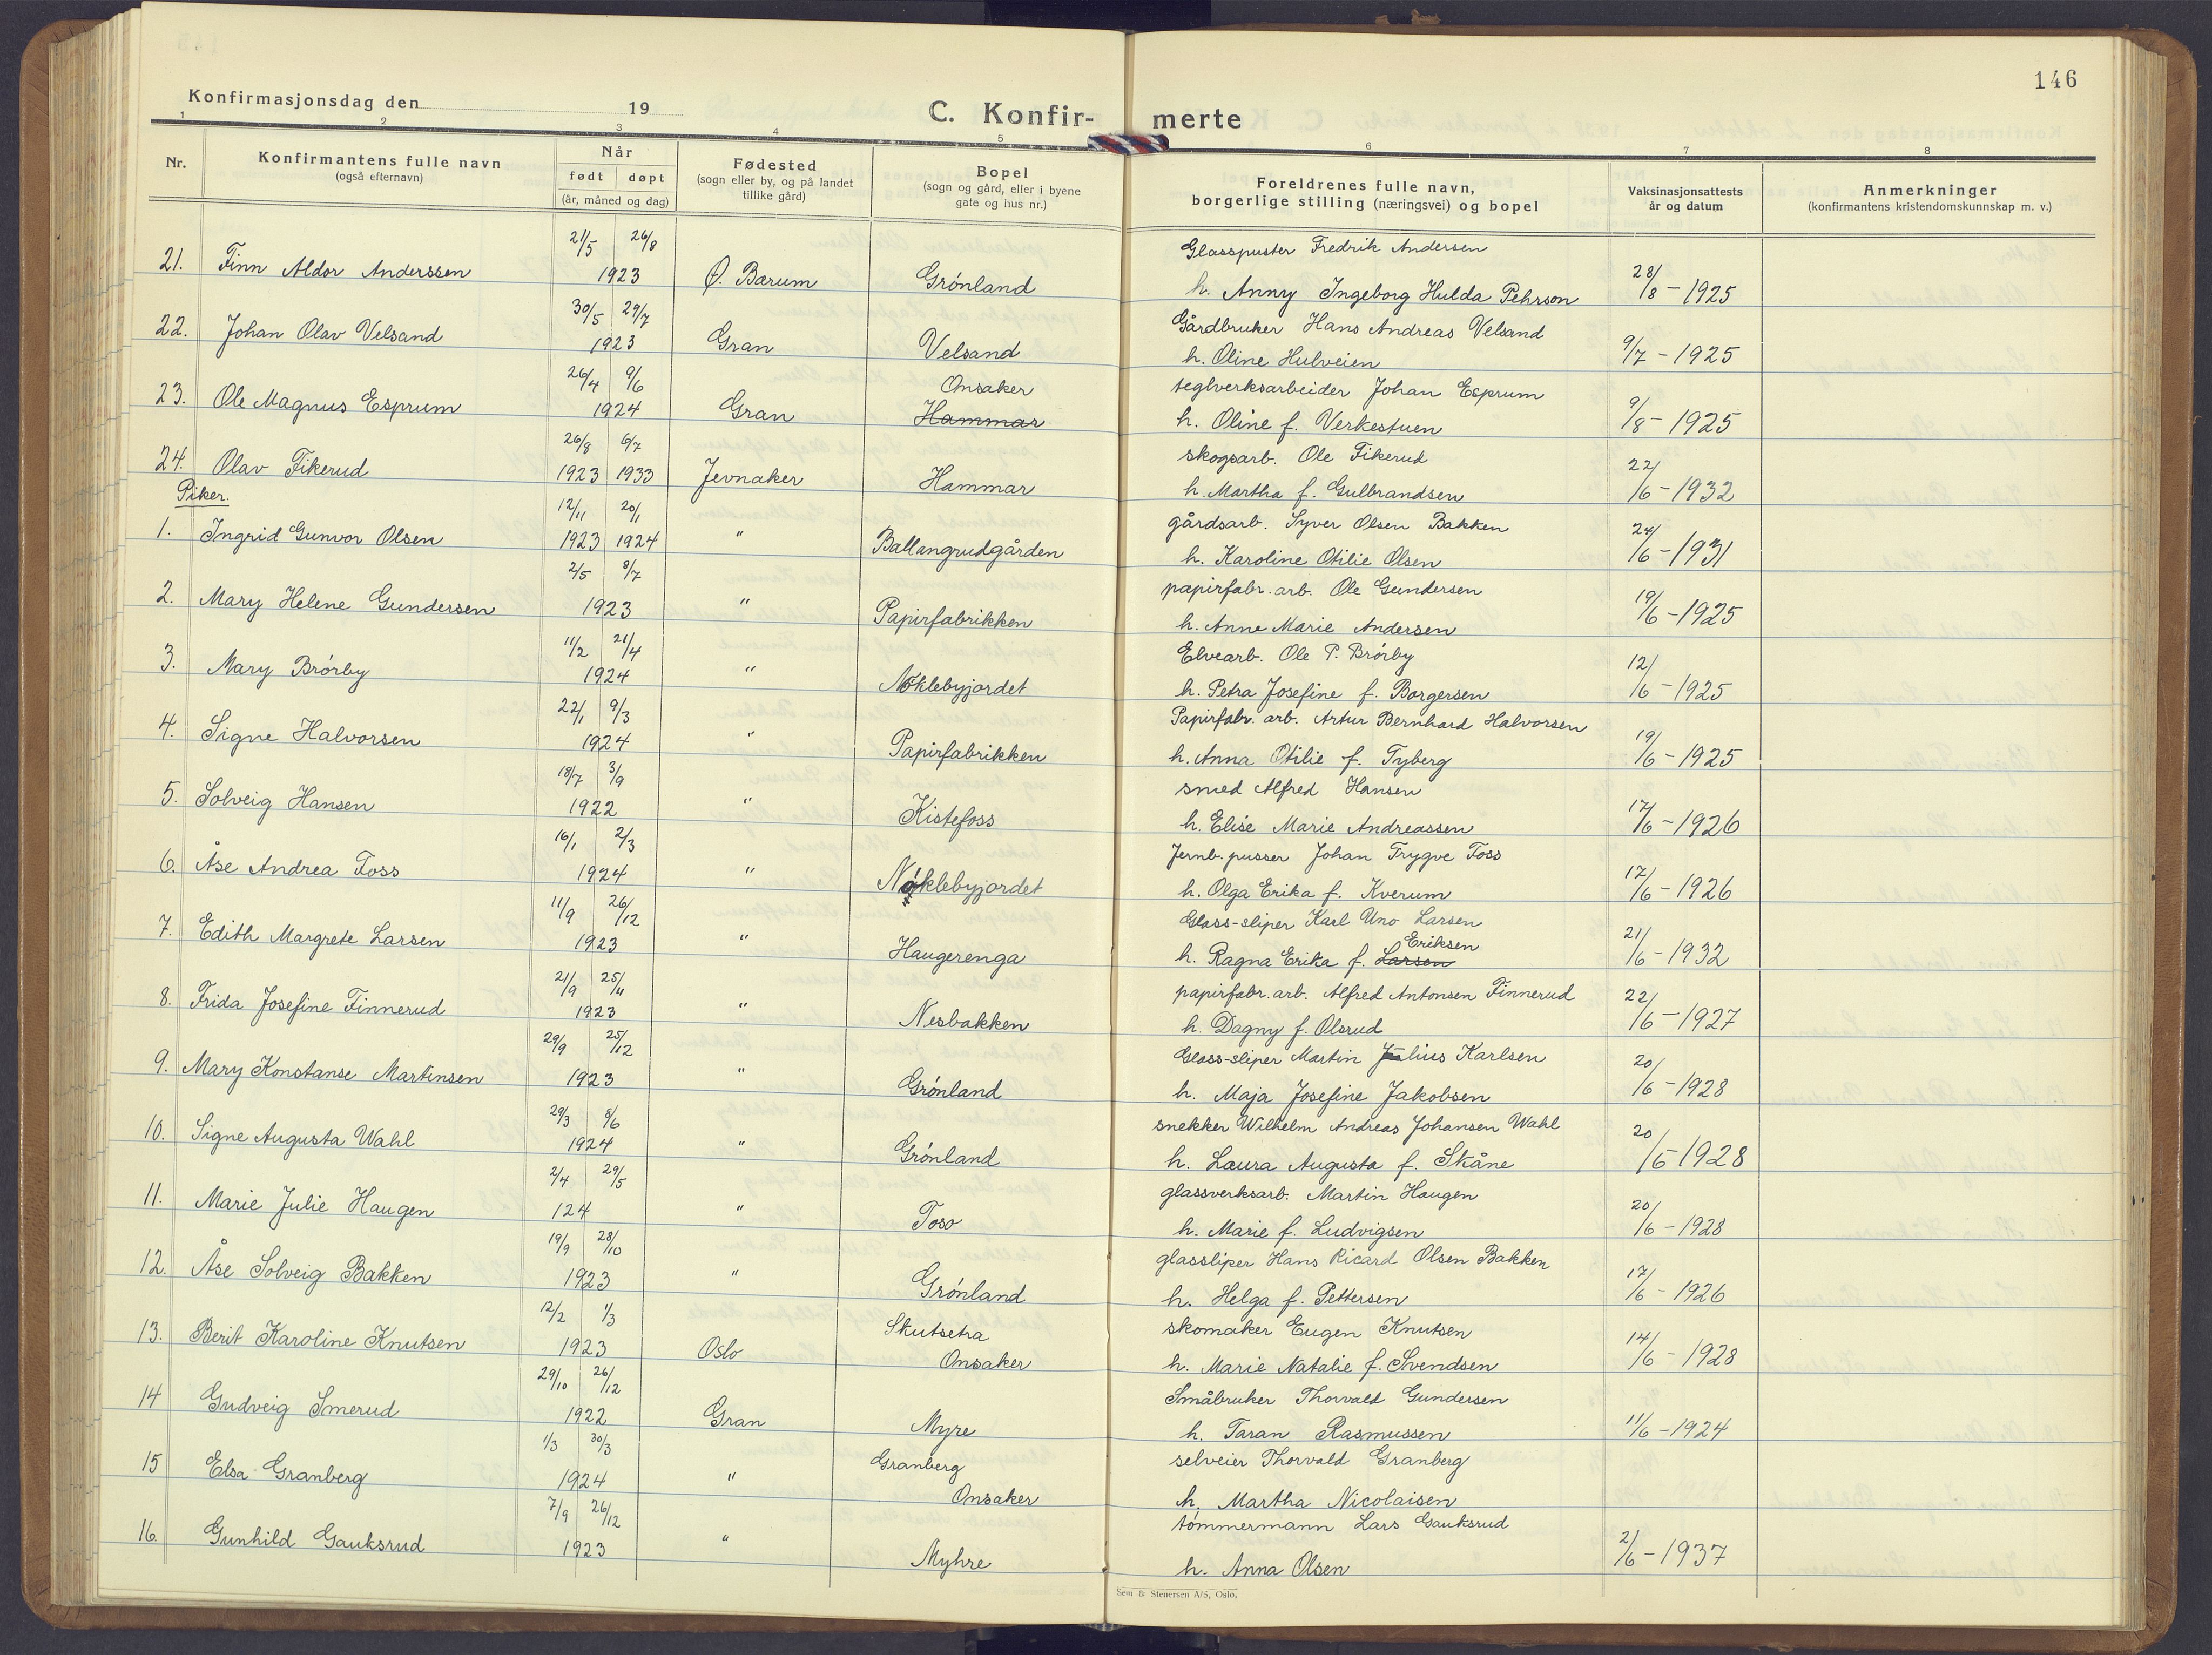 146
Konfirmasjonsdag den 19
C. Konfir- merte
1 2 3 4 5 6 7 8
Nr.
Konfirmantens fulle navn
(også efternavn)
Når
født døpt
(år, måned og dag)
Fødested
(sogn eller by, og på landet
tillike gård)
Bopel
(sogn og gård, eller i byene
gate og hus nr.)
Foreldrenes fulle navn,
borgerlige stilling (næringsvei) og bopel
Vaksinasjonsattests
år og datum
Anmerkninger
(konfirmantens kristendomskunnskap m. v.)
21/5 26/8 Glasspuster Fredrik Andersen
21. Finn Aldor Anderssen 1923 Ø. Bærum Grönland h. Anny Ingeborg Hulda Pehrson 28/8 - 1925
30/5 29/7 Gårdbruker Hans Andreas Velsand
22. Johan Olav Velsand 1923 Gran Velsand h. Oline Hulveien 9/7 - 1925
26/4 9/6 Onsaker teglverksarbeider Johan Esprum
23. Ole Magnus Esprum 1924 Gran Hammar h. Oline f. Verkestuen 9/8 - 1925
26/8 6/7 skogsarb. Ole Fikerud
24. Olav Fikerud 1923 1933 Jevnaker Hammar h. Martha f. Gulbrandsen 22/6 - 1932
Piker.
12/11 20/1 gårdsarb. Syver Olsen Bakken
1. Ingrid Gunvor Olsen 1923 1924 " Ballangrudgården h. Karoline Otilie Olsen 24/6 - 1931
2/5 8/7 papirfabr. arb. Ole Gundersen
2. Mary Helene Gundersen 1923 " Papirfabrikken h. Anne Marie Andersen 19/6 - 1925
11/2 21/4 Elvearb. Ole P. Brörby
3. Mary Brörby 1924 " Nöklebyjordet h. Petra Josefine f. Borgersen 12/6 - 1925
22/1 9/3 Papirfabr. arb. Artur Bernhard Halvorsen
4. Signe Halvorsen 1924 " Papirfabrikken h. Anna Otilie f. Tyberg 19/6 - 1925
18/7 3/9 smed Alfred Hansen
5. Solveig Hansen 1922 " Kistefoss h. Elise Marie Andreassen 17/6 - 1926
16/1 2/3 Jernb. pusser Johan Trygve Foss
6. Åse Andrea Foss 1924 " Nöklebyjordet h. Olga Erika f. Kverum 17/6 - 1926
11/9 26/12 Glass-sliper Karl Uno Larsen
Eriksen
7. Edith Margrete Larsen 1923 " Haugerenga h. Ragna Erika f. Larsen 21/6 - 1932
21/9 25/11 papirfabr. arb. Alfred Antonsen Finnerud
8. Frida Josefine Finnerud 1923 " Nesbakken h. Dagny f. Olsrud 22/6 - 1927
29/9 25/12 Glass-sliper Martin Julius Karlsen
9. Mary Konstanse Martinsen 1923 " Grönland h. Maja Josefine Jakobsen 20/6 - 1928
29/3 8/6 snekker Wilhelm Andreas Johansen Wahl
10. Signe Augusta Wahl 1924 " Grönland h. Laura Augusta f. Skåne 20/6 1928
2/4 29/5 glassverksarb. Martin Haugen
11. Marie Julie Haugen 124 " Toso h. Marie f. Ludvigsen 20/6 - 1928
19/9 28/10 glassliper Hans Ricard Olsen Bakken
12. Åse Solveig Bakken 1923 " Grönland h. Helga f. Pettersen 17/6 - 1926
12/2 1/3 Skutsetra skomaker Eugen Knutsen
13. Berit Karoline Knutsen 1923 Oslo Onsaker h. Marie Natalie f. Svendsen 14/6 - 1928
29/10 26/12 Småbruker Thorvald Gundersen
14 Gudveig Smerud 1922 Gran Myre h. Taran Rasmussen 11/6 - 1924
1/3 30/3 Granberg selveier Thorvald Granberg
15 Elsa Granberg 1924 " Onsaker h. Martha Nicolaisen
7/9 26/12 tömmermann Lars Gauksrud
16. Gunhild Gauksrud 1923 " Myhre h. Anna Olsen 2/6 - 1937
Sem & Stenersen A/S, Oslo.